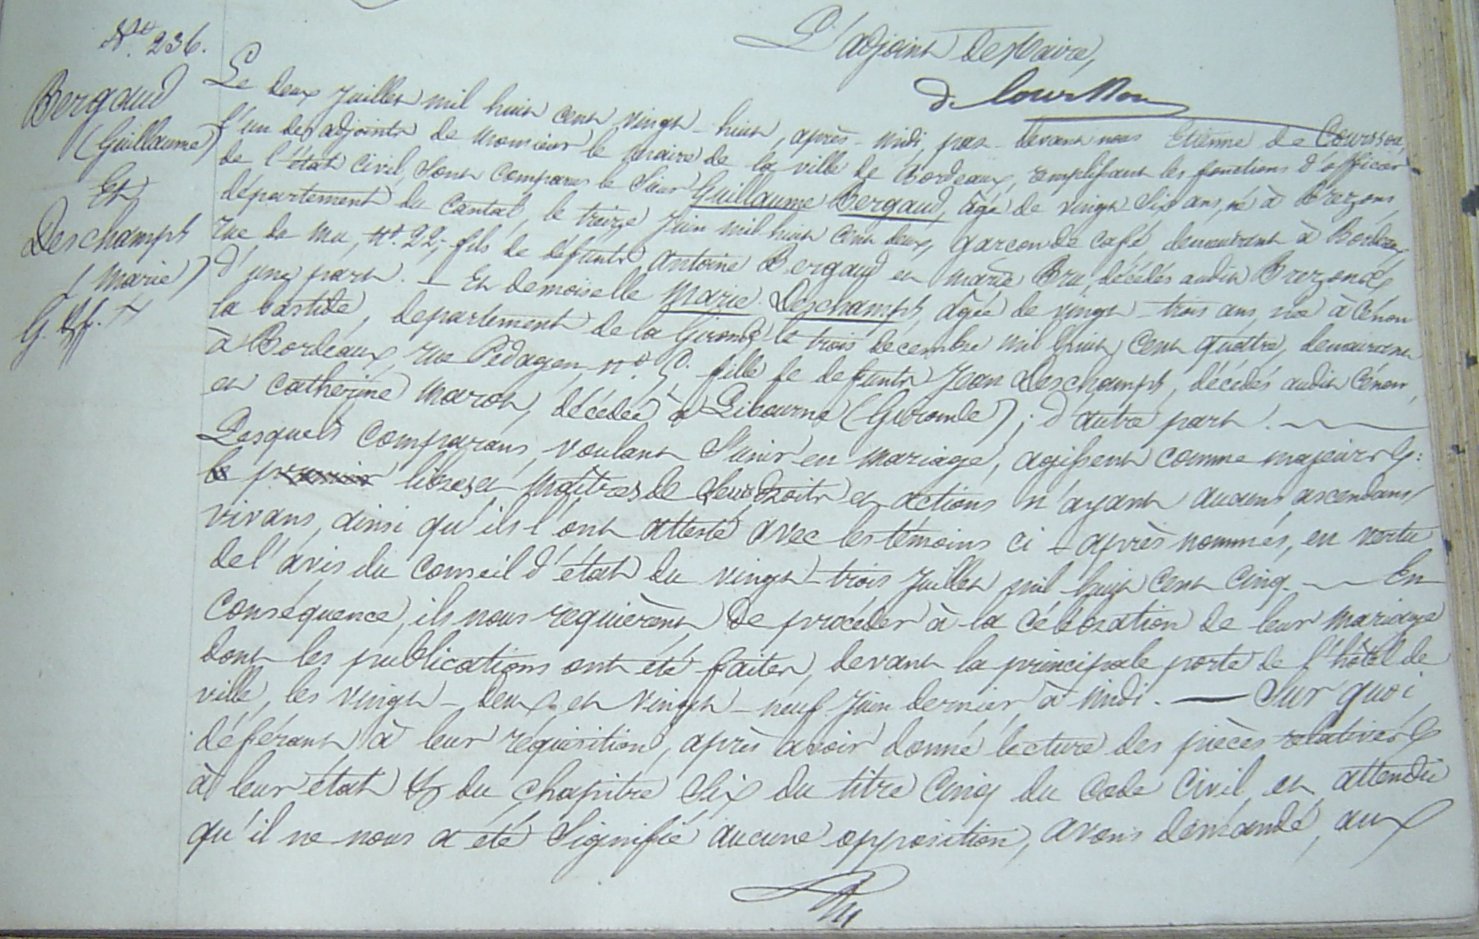 L'adjoint de Maire,
de Coursson
N.º 236.
Bergaud
(Guillaume)
Et
Deschamps
(Marie)
Le deux Juillet mil huit cent vingt-huit, après-midi, par-devant nous Etienne de Coursson,
l'un des adjoints de Monsieur le Maire de la ville de Bordeaux, remplissant les fonctions d'officier
de l'état civil, sont comparus le Sieur Guillaume Bergaud, âgé de vingt six ans, né à Brezons
département du Cantal, le treize Juin mil huit cent deux, garçon de café, demeurant à Bordeaux,
rue de Mu, n.º 22, fils de défunts Antoine Bergaud et Marie Bru, décédés audit Brezons
d'une part. — Et demoiselle Marie Deschamps, âgée de vingt-trois ans, née à Cénon
la bastide, département de la Gironde le trois Décembre mil huit cent quatre, demeurant
à Bordeaux, rue n.º fille de défunts Jean Deschamps, décédés audit Cénon,
et Catherine Marot, décédée à Libourne (Gironde); d'autre part.
Lesquels comparans, voulant s'unir en mariage, agissent comme majeurs
libres et maîtres de leurs droits et actions n'ayant aucuns ascendans
vivans, ainsi qu'ils l'ont attesté avec les témoins ci-après nommés, en vertu
de l'avis du Conseil d'état du vingt-trois Juillet mil huit cent cinq. — En
conséquence, ils nous requièrent de procéder à la célébration de leur mariage
dont les publications ont été faites, devant la principale porte de l'hôtel de
ville, les vingt-deux et vingt-neuf Juin dernier à midi. — Sur quoi
déférant à leur réquisition, après avoir donné lecture des pièces relatives
à leur état & du chapitre six du titre cinq du Code Civil et attendu
qu'il ne nous a été signifié aucune opposition, avons demandé, aux